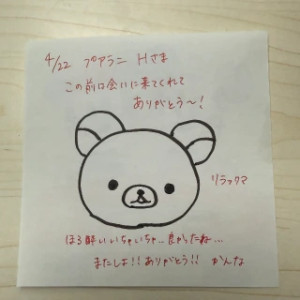 4/22 プアラニ Hさま
この前は会いに来てくれて
ありがとう〜!
リラックマ
ほろ酔いいちゃいちゃ...良かったね...
またしよ!!ありがとう!! かんな